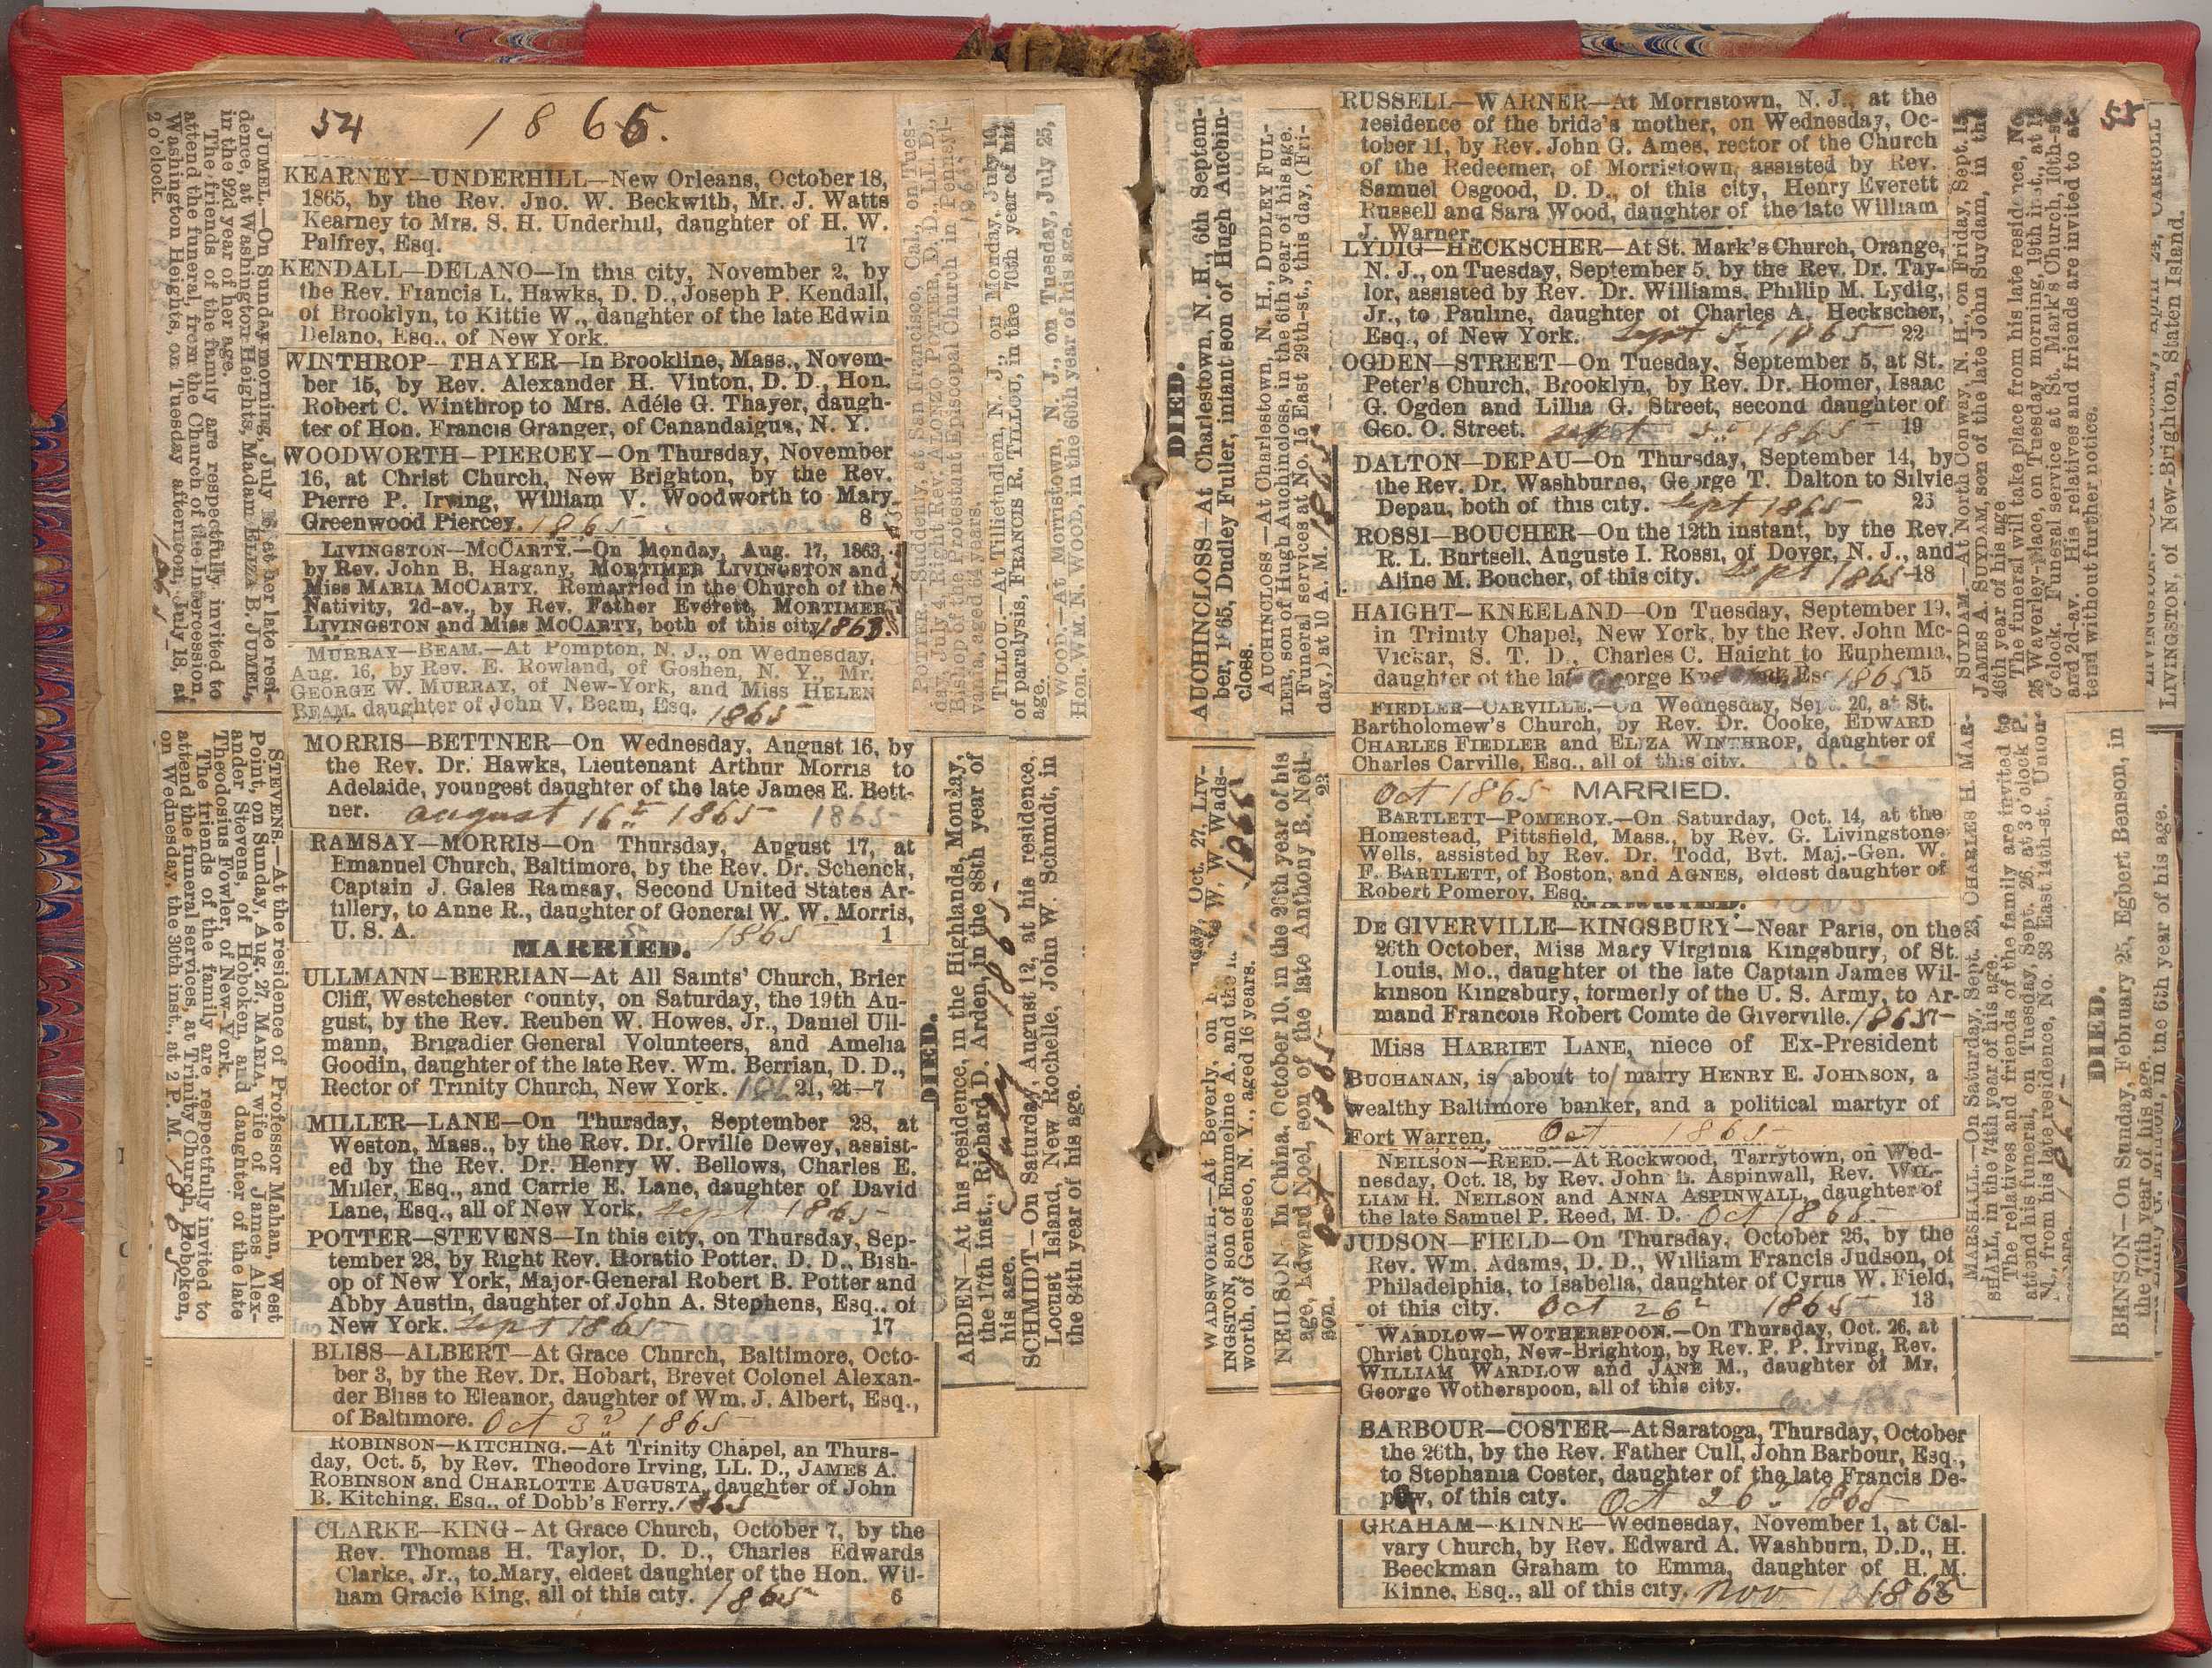 54 1865.
JUMEL.—On Sunday morning, July 16, at her late resi-
dence, at Washington Heights, Madam ELIZA B. JUMEL,
in the 92d year of her age.
The friends of the family are respectfully invited to
attend the funeral, from the Church of the Intercession,
Washington Heights, on Tuesday afternoon, July 18, at
2 o'clock. 1865
STEVENS.—At the residence of Professor Mahan, West
Point, on Sunday, Aug. 27, MARIA, wife of James Alex-
ander Stevens, of Hoboken, and daughter of the late
Theodosius Fowler, of New-York.
The friends of the family are respectfully invited to
attend the funeral services, at Trinity Church, Hoboken,
on Wednesday, the 30th inst., at 2 P. M. 1865
KEARNEY—UNDERHILL—New Orleans, October 18,
1865, by the Rev. Jno. W. Beckwith, Mr. J. Watts
Kearney to Mrs. S. H. Underhill, daughter of H. W.
Palfrey, Esq. 17
KENDALL—DELANO—In this city, November 2, by
the Rev. Francis L. Hawks, D. D., Joseph P. Kendall,
of Brooklyn, to Kittie W., daughter of the late Edwin
Delano, Esq., of New York.
WINTHROP—THAYER—In Brookline, Mass., Novem-
ber 15, by Rev. Alexander H. Vinton, D. D., Hon.
Robert C. Winthrop to Mrs. Adéle G. Thayer, daugh-
ter of Hon. Francis Granger, of Canandaigua, N. Y.
WOODWORTH—PIERCEY—On Thursday, November
16, at Christ Church, New Brighton, by the Rev.
Pierre P. Irving, William V. Woodworth to Mary
Greenwood Piercey. 1865 8
LIVINGSTON—MCCARTY.—On Monday, Aug. 17, 1863,
by Rev. John B. Hagany, MORTIMER LIVINGSTON and
Miss MARIA MCCARTY. Remarried in the Church of the
Nativity, 2d-av., by Rev. Father Everett, MORTIMER
LIVINGSTON and Miss MCCARTY, both of this city. 1863.
MURRAY—BEAM.—At Pompton, N. J., on Wednesday,
Aug. 16, by Rev. E. Rowland, of Goshen, N. Y., Mr.
GEORGE W. MURRAY, of New-York, and Miss HELEN
BEAM, daughter of John V. Beam, Esq. 1865
MORRIS—BETTNER—On Wednesday, August 16, by
the Rev. Dr. Hawks, Lieutenant Arthur Morris to
Adelaide, youngest daughter of the late James E. Bett-
ner. august 16th 1865 1865
RAMSAY—MORRIS—On Thursday, August 17, at
Emanuel Church, Baltimore, by the Rev. Dr. Schenck,
Captain J. Gales Ramsay, Second United States Ar-
tillery, to Anne R., daughter of General W. W. Morris,
U. S. A. 1865 1
MARRIED.
ULLMANN—BERRIAN—At All Saints' Church, Brier
Cliff, Westchester County, on Saturday, the 19th Au-
gust, by the Rev. Reuben W. Howes, Jr., Daniel Ull-
mann, Brigadier General Volunteers, and Amelia
Goodin, daughter of the late Rev. Wm. Berrian, D. D.,
Rector of Trinity Church, New York. 21, 2t—7
MILLER—LANE—On Thursday, September 28, at
Weston, Mass., by the Rev. Dr. Orville Dewey, assist-
ed by the Rev. Dr. Henry W. Bellows, Charles E.
Miller, Esq., and Carrie E. Lane, daughter of David
Lane, Esq., all of New York. Sept 1865
POTTER—STEVENS—In this city, on Thursday, Sep-
tember 28, by Right Rev. Horatio Potter, D. D., Bish-
op of New York, Major-General Robert B. Potter and
Abby Austin, daughter of John A. Stephens, Esq., of
New York. Sept 1865 17
BLISS—ALBERT—At Grace Church, Baltimore, Octo-
ber 3, by the Rev. Dr. Hobart, Brevet Colonel Alexan-
der Bliss to Eleanor, daughter of Wm. J. Albert, Esq.,
of Baltimore. Oct 3d 1865
ROBINSON—KITCHING.—At Trinity Chapel, an Thurs-
day, Oct. 5, by Rev. Theodore Irving, LL. D., JAMES A.
ROBINSON and CHARLOTTE AUGUSTA, daughter of John
B. Kitching, Esq., of Dobb's Ferry. 1865
CLARKE—KING—At Grace Church, October 7, by the
Rev. Thomas H. Taylor, D. D., Charles Edwards
Clarke, Jr., to Mary, eldest daughter of the Hon. Wil-
liam Gracie King, all of this city. 1865 6
POTTER.—Suddenly, at San Francisco, Cal., on Tues-
day, July 4, Right Rev. ALONZO POTTER, D. D., LL. D.,
Bishop of the Protestant Episcopal Church in Pennsyl-
vania, aged 64 years.
TILLOU.—At Tillietudlem, N. J., on Monday, July 10,
of paralysis, FRANCIS R. TILLOU, in the 70th year of his
age.
WOOD.—At Morristown, N. J., on Tuesday, July 25,
Hon. WM. N. WOOD, in the 60th year of his age.
DIED.
ARDEN—At his residence, in the Highlands, Monday,
the 17th inst., Richard D. Arden, in the 88th year of
his age. July 1865
SCHMIDT—On Saturday, August 12, at his residence,
Locust Island, New Rochelle, John W. Schmidt, in
the 84th year of his age.
55
DIED.
AUCHINCLOSS—At Charlestown, N. H., 6th Septem-
ber, 1865, Dudley Fuller, infant son of Hugh Auchin-
closs.
AUCHINCLOSS.—At Charlestown, N. H., DUDLEY FUL-
LER, son of Hugh Auchincloss, in the 6th year of his age.
Funeral services at No. 15 East 29th-st., this day, (Fri-
day,) at 10 A. M. 1865
WADSWORTH.—At Beverly, on Oct. 27, LIV-
INGSTON, son of Emmeline A. and the late W. W. Wads-
worth, of Geneseo, N. Y., aged 16 years. 1865
NEILSON—In China, October 10, in the 26th year of his
age, Edward Noel, son of the late Anthony B. Neil-
son. Oct 1865 22
RUSSELL—WARNER—At Morristown, N. J., at the
residence of the bride's mother, on Wednesday, Oc-
tober 11, by Rev. John G. Ames, rector of the Church
of the Redeemer, of Morristown, assisted by Rev.
Samuel Osgood, D. D., of this city, Henry Everett
Russell and Sara Wood, daughter of the late William
J. Warner.
LYDIG—HECKSCHER—At St. Mark's Church, Orange,
N. J., on Tuesday, September 5, by the Rev. Dr. Tay-
lor, assisted by Rev. Dr. Williams, Phillip M. Lydig,
Jr., to Pauline, daughter of Charles A. Heckscher,
Esq., of New York. Sept 5th 1865 22
OGDEN—STREET—On Tuesday, September 5, at St.
Peter's Church, Brooklyn, by Rev. Dr. Homer, Isaac
G. Ogden and Lillia G. Street, second daughter of
Geo. O. Street. Sept 5th 1865 19
DALTON—DEPAU—On Thursday, September 14, by
the Rev. Dr. Washburne, George T. Dalton to Silvie
Depau, both of this city. Sept 1865 25
ROSSI—BOUCHER—On the 12th instant, by the Rev.
R. L. Burtsell, Auguste I. Rossi, of Dover, N. J., and
Aline M. Boucher, of this city. Sept 1865 18
HAIGHT—KNEELAND—On Tuesday, September 19,
in Trinity Chapel, New York, by the Rev. John Mc-
Vickar, S. T. D., Charles C. Haight to Euphemia,
daughter of the late George Kneeland, Esq. 1865 15
FIEDLER—CARVILLE.—On Wednesday, Sept. 20, at St.
Bartholomew's Church, by Rev. Dr. Cooke, EDWARD
CHARLES FIEDLER and ELIZA WINTHROP, daughter of
Charles Carville, Esq., all of this city.
Oct 1865 MARRIED.
BARTLETT—POMEROY.—On Saturday, Oct. 14, at the
Homestead, Pittsfield, Mass., by Rev. G. Livingstone
Wells, assisted by Rev. Dr. Todd, Bvt. Maj.-Gen. W.
F. BARTLETT, of Boston, and AGNES, eldest daughter of
Robert Pomeroy, Esq.
DE GIVERVILLE—KINGSBURY—Near Paris, on the
26th October, Miss Mary Virginia Kingsbury, of St.
Louis, Mo., daughter of the late Captain James Wil-
kinson Kingsbury, formerly of the U. S. Army, to Ar-
mand Francois Robert Comte de Giverville. 1865
Miss HARRIET LANE, niece of Ex-President
BUCHANAN, is about to marry HENRY E. JOHNSON, a
wealthy Baltimore banker, and a political martyr of
Fort Warren. Oct 1865
NEILSON—REED.—At Rockwood, Tarrytown, on Wed-
nesday, Oct. 18, by Rev. John B. Aspinwall, Rev. WIL-
LIAM H. NEILSON and ANNA ASPINWALL, daughter of
the late Samuel P. Reed, M. D. Oct 1865
JUDSON—FIELD—On Thursday, October 26, by the
Rev. Wm. Adams, D. D., William Francis Judson, of
Philadelphia, to Isabella, daughter of Cyrus W. Field,
of this city. Oct 26th 1865 13
WARDLOW—WOTHERSPOON.—On Thursday, Oct. 26, at
Christ Church, New-Brighton, by Rev. P. P. Irving, Rev.
WILLIAM WARDLOW and JANE M., daughter of Mr.
George Wotherspoon, all of this city.
Oct 1865
BARBOUR—COSTER—At Saratoga, Thursday, October
the 26th, by the Rev. Father Cull, John Barbour, Esq.,
to Stephania Coster, daughter of the late Francis De-
paw, of this city. Oct 26th 1865
GRAHAM—KINNE—Wednesday, November 1, at Cal-
vary Church, by Rev. Edward A. Washburn, D.D., H.
Beeckman Graham to Emma, daughter of H. M.
Kinne, Esq., all of this city. Nov 1865
SUYDAM.—At North Conway, N. H., on Friday, Sept. 15,
JAMES A. SUYDAM, son of the late John Suydam, in the
46th year of his age
The funeral will take place from his late residence, No.
25 Waverley-place, on Tuesday morning, 19th inst., at
o'clock. Funeral service at St. Mark's Church, 10th-st.
and 2d-av. His relatives and friends are invited to at-
tend without further notices.
LIVINGSTON, of New-Brighton, Staten Island.
MARSHALL.—On Saturday, Sept. 23, CHARLES H. MAR-
SHALL, in the 74th year of his age.
The relatives and friends of the family are invited to
attend his funeral, on Tuesday, Sept. 26, at 3 o'clock P.
M., from his late residence, No. 38 East 14th-st., Union-
square. 1865
DIED.
BENSON—On Sunday, February 25, Egbert Benson, in
the 77th year of his age.
in the 6th year of his age.